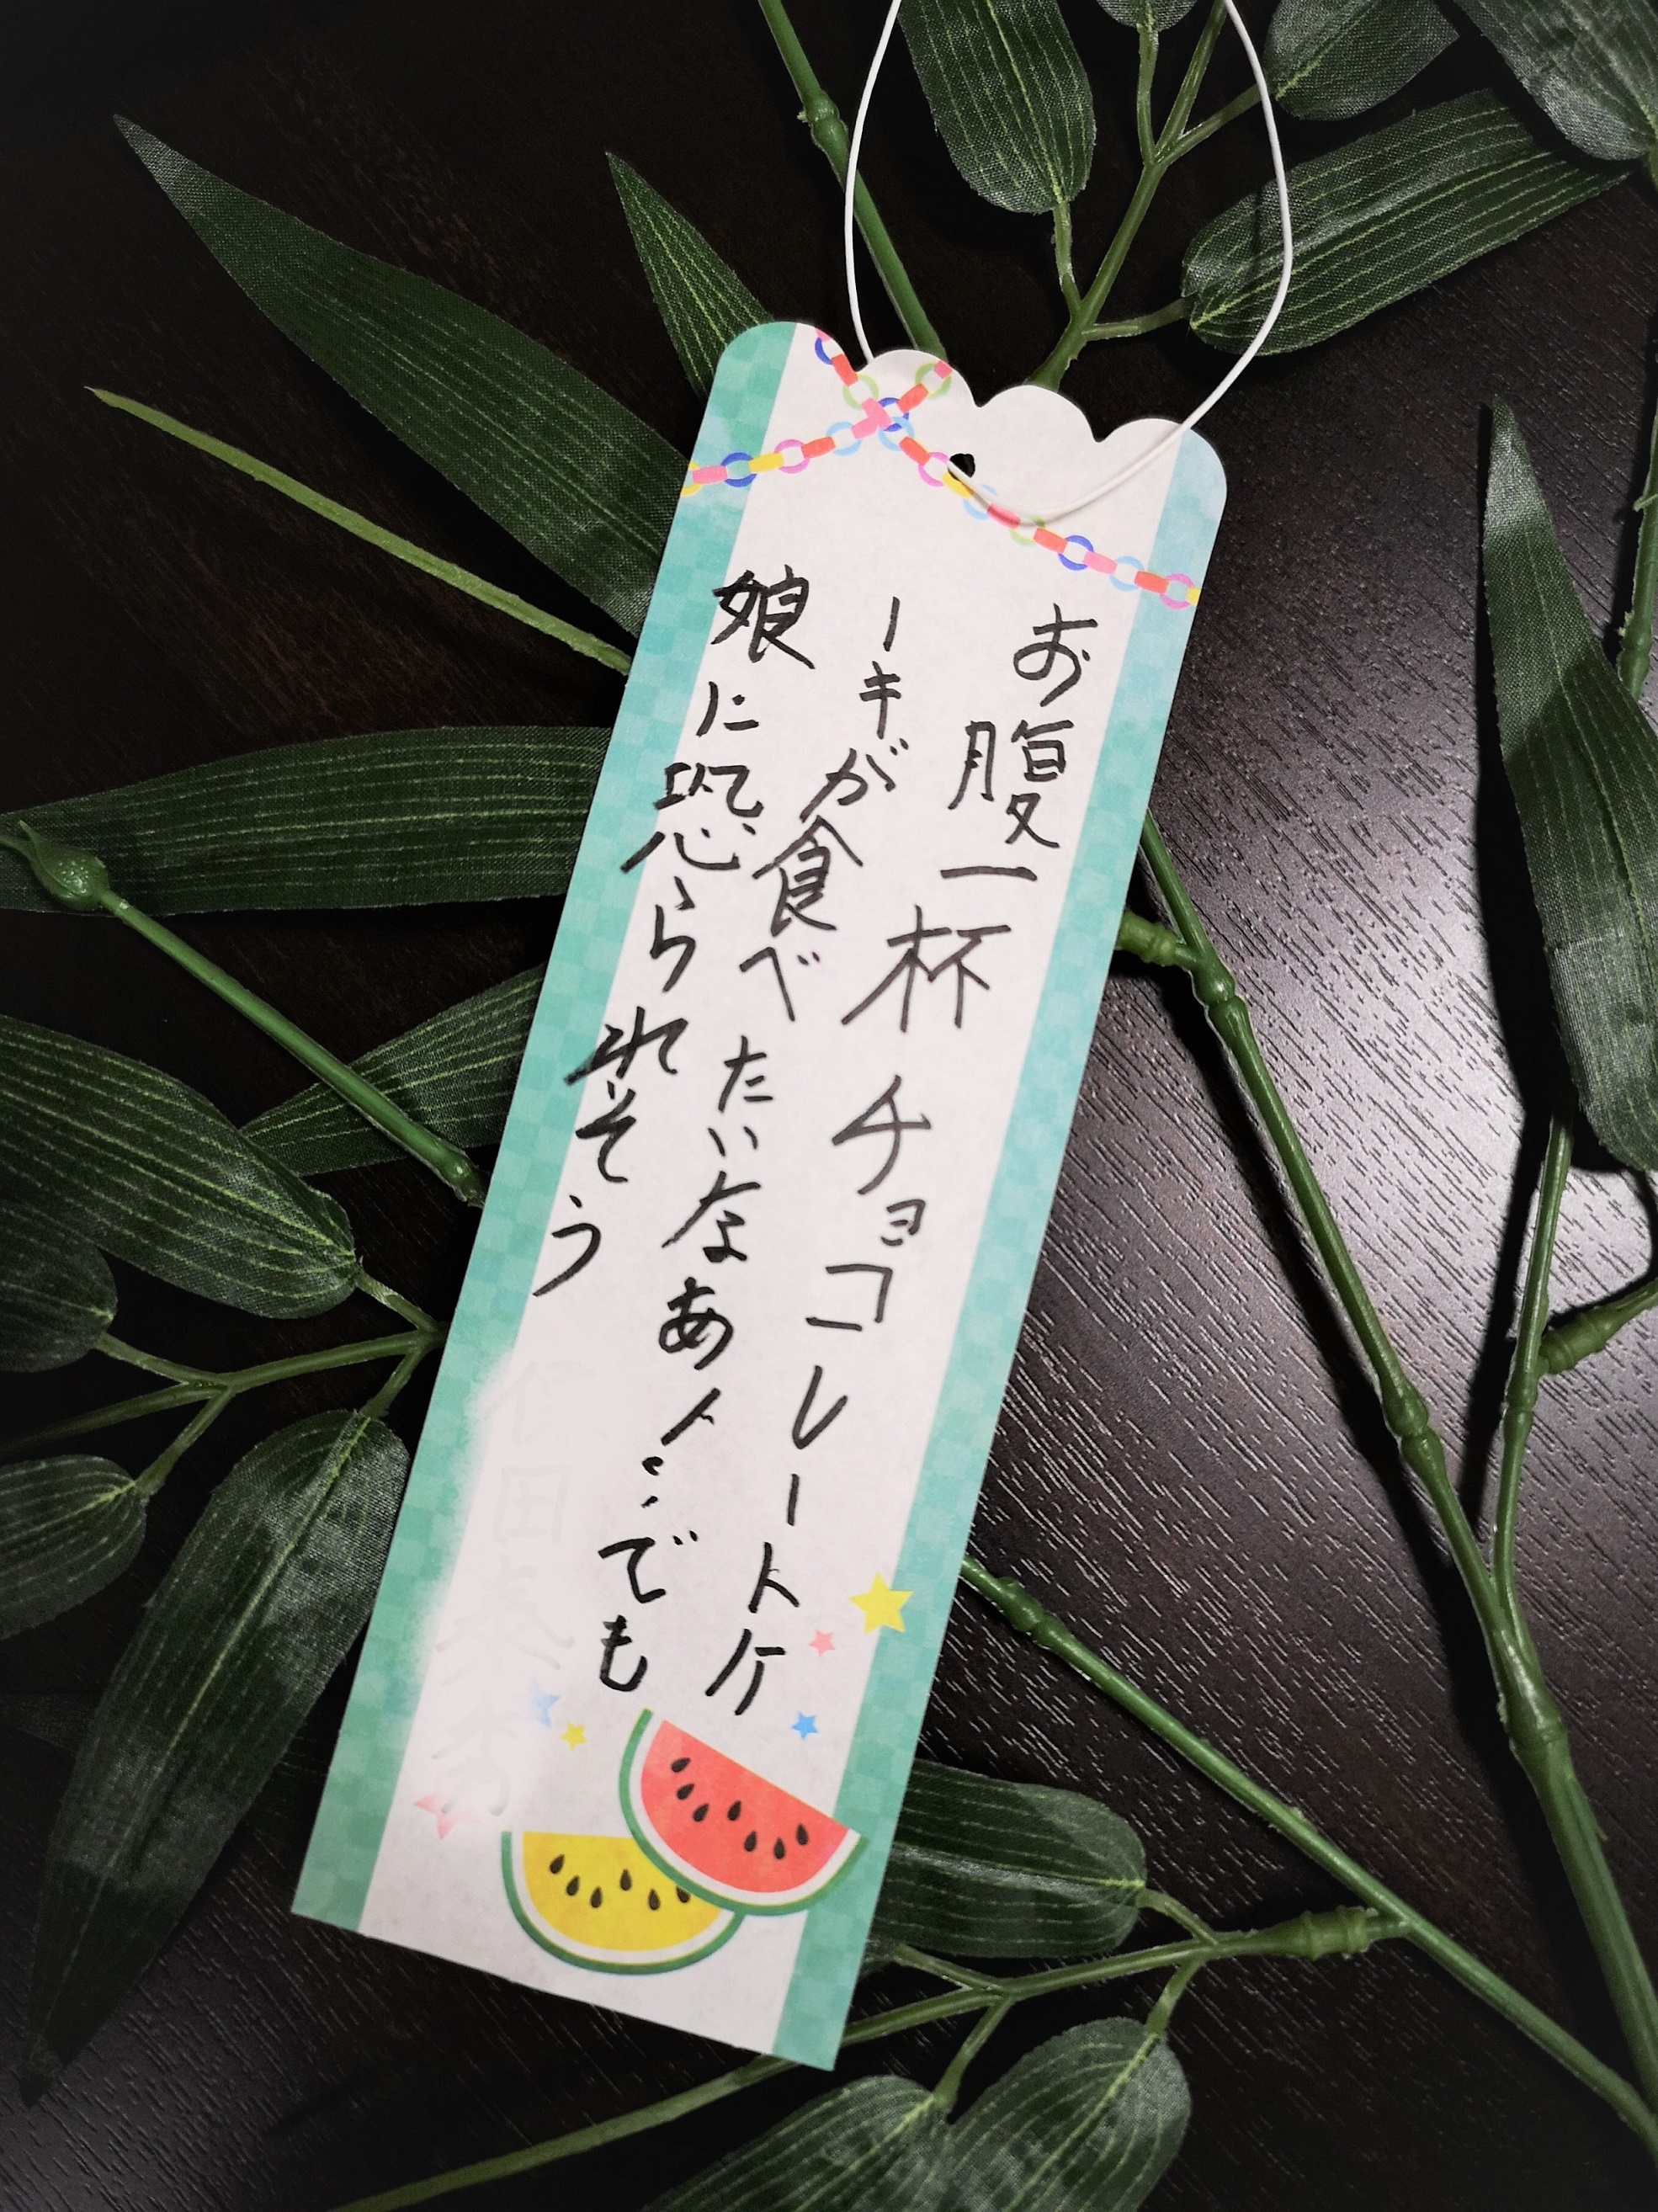 お腹一杯チョコレートケ
ーキが食べたいなあ〜…でも
娘に恐られそう